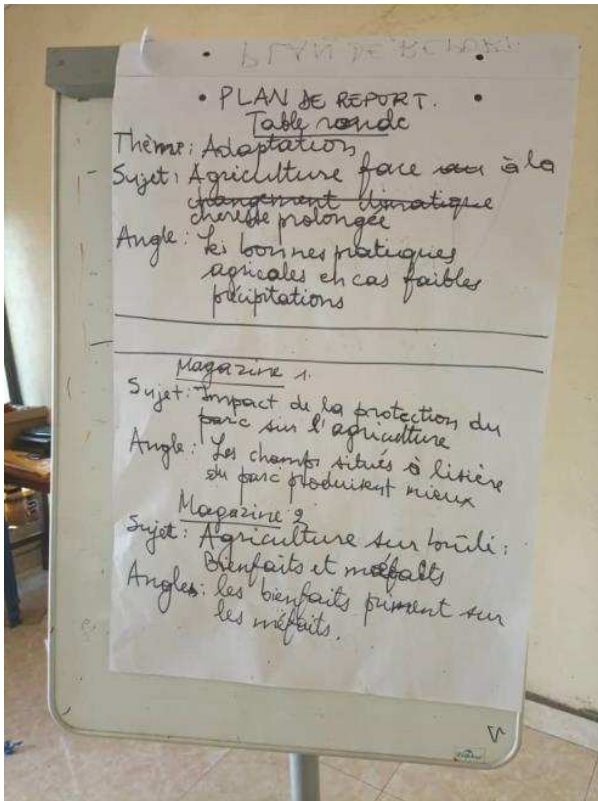 PLAN DE REPORT.
Table ronde
Thème: Adaptation
Sujet: Agriculture face au à la
changement climatique
cherèsse prolongée
Angle: Les bonnes pratiques
agricales en cas faibles
précipitations
Magazine 1.
Sujet: Impact de la protection du
parc sur l'agriculture
Angle: Les champs situés à lisière
du parc produisent mieux
Magazine 2
Sujet: Agriculture sur brûli:
Bienfaits et méfaits
Angles: les bienfaits priment sur
les méfaits.